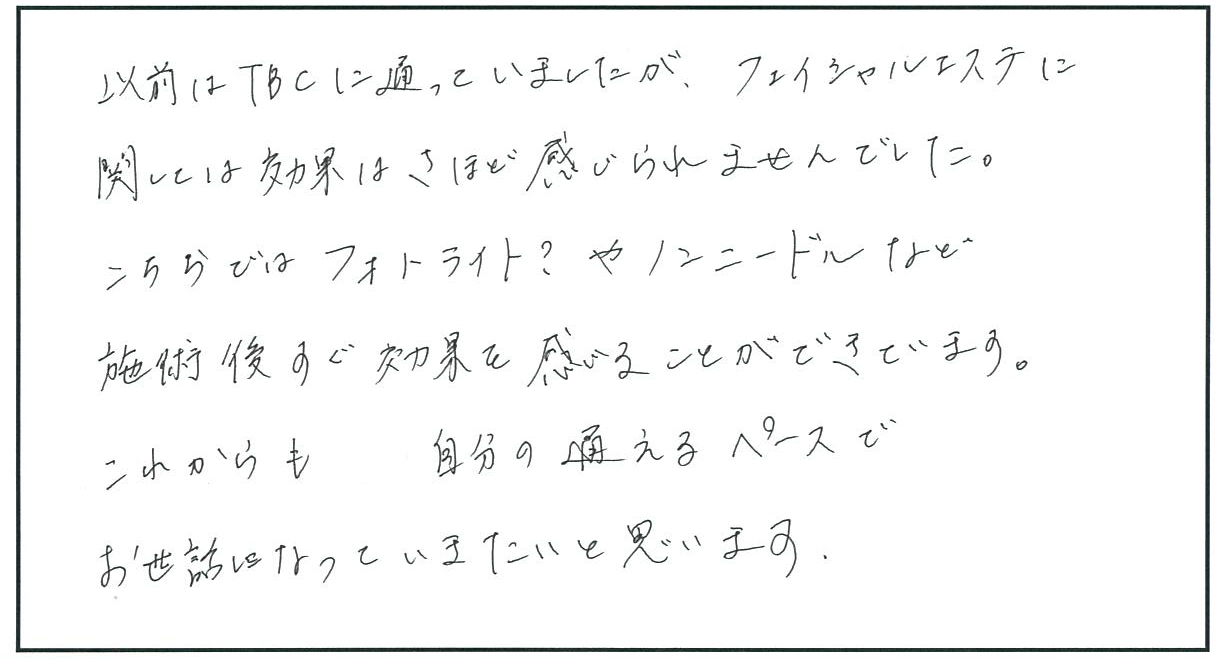 以前はTBCに通っていましたが、フェイシャルエステに
関しては効果はさほど感じられませんでした。
こちらではフォトライト？やノンニードルなど
施術後すぐ効果を感じることができています。
これからも 自分の通えるペースで
お世話になっていきたいと思います．